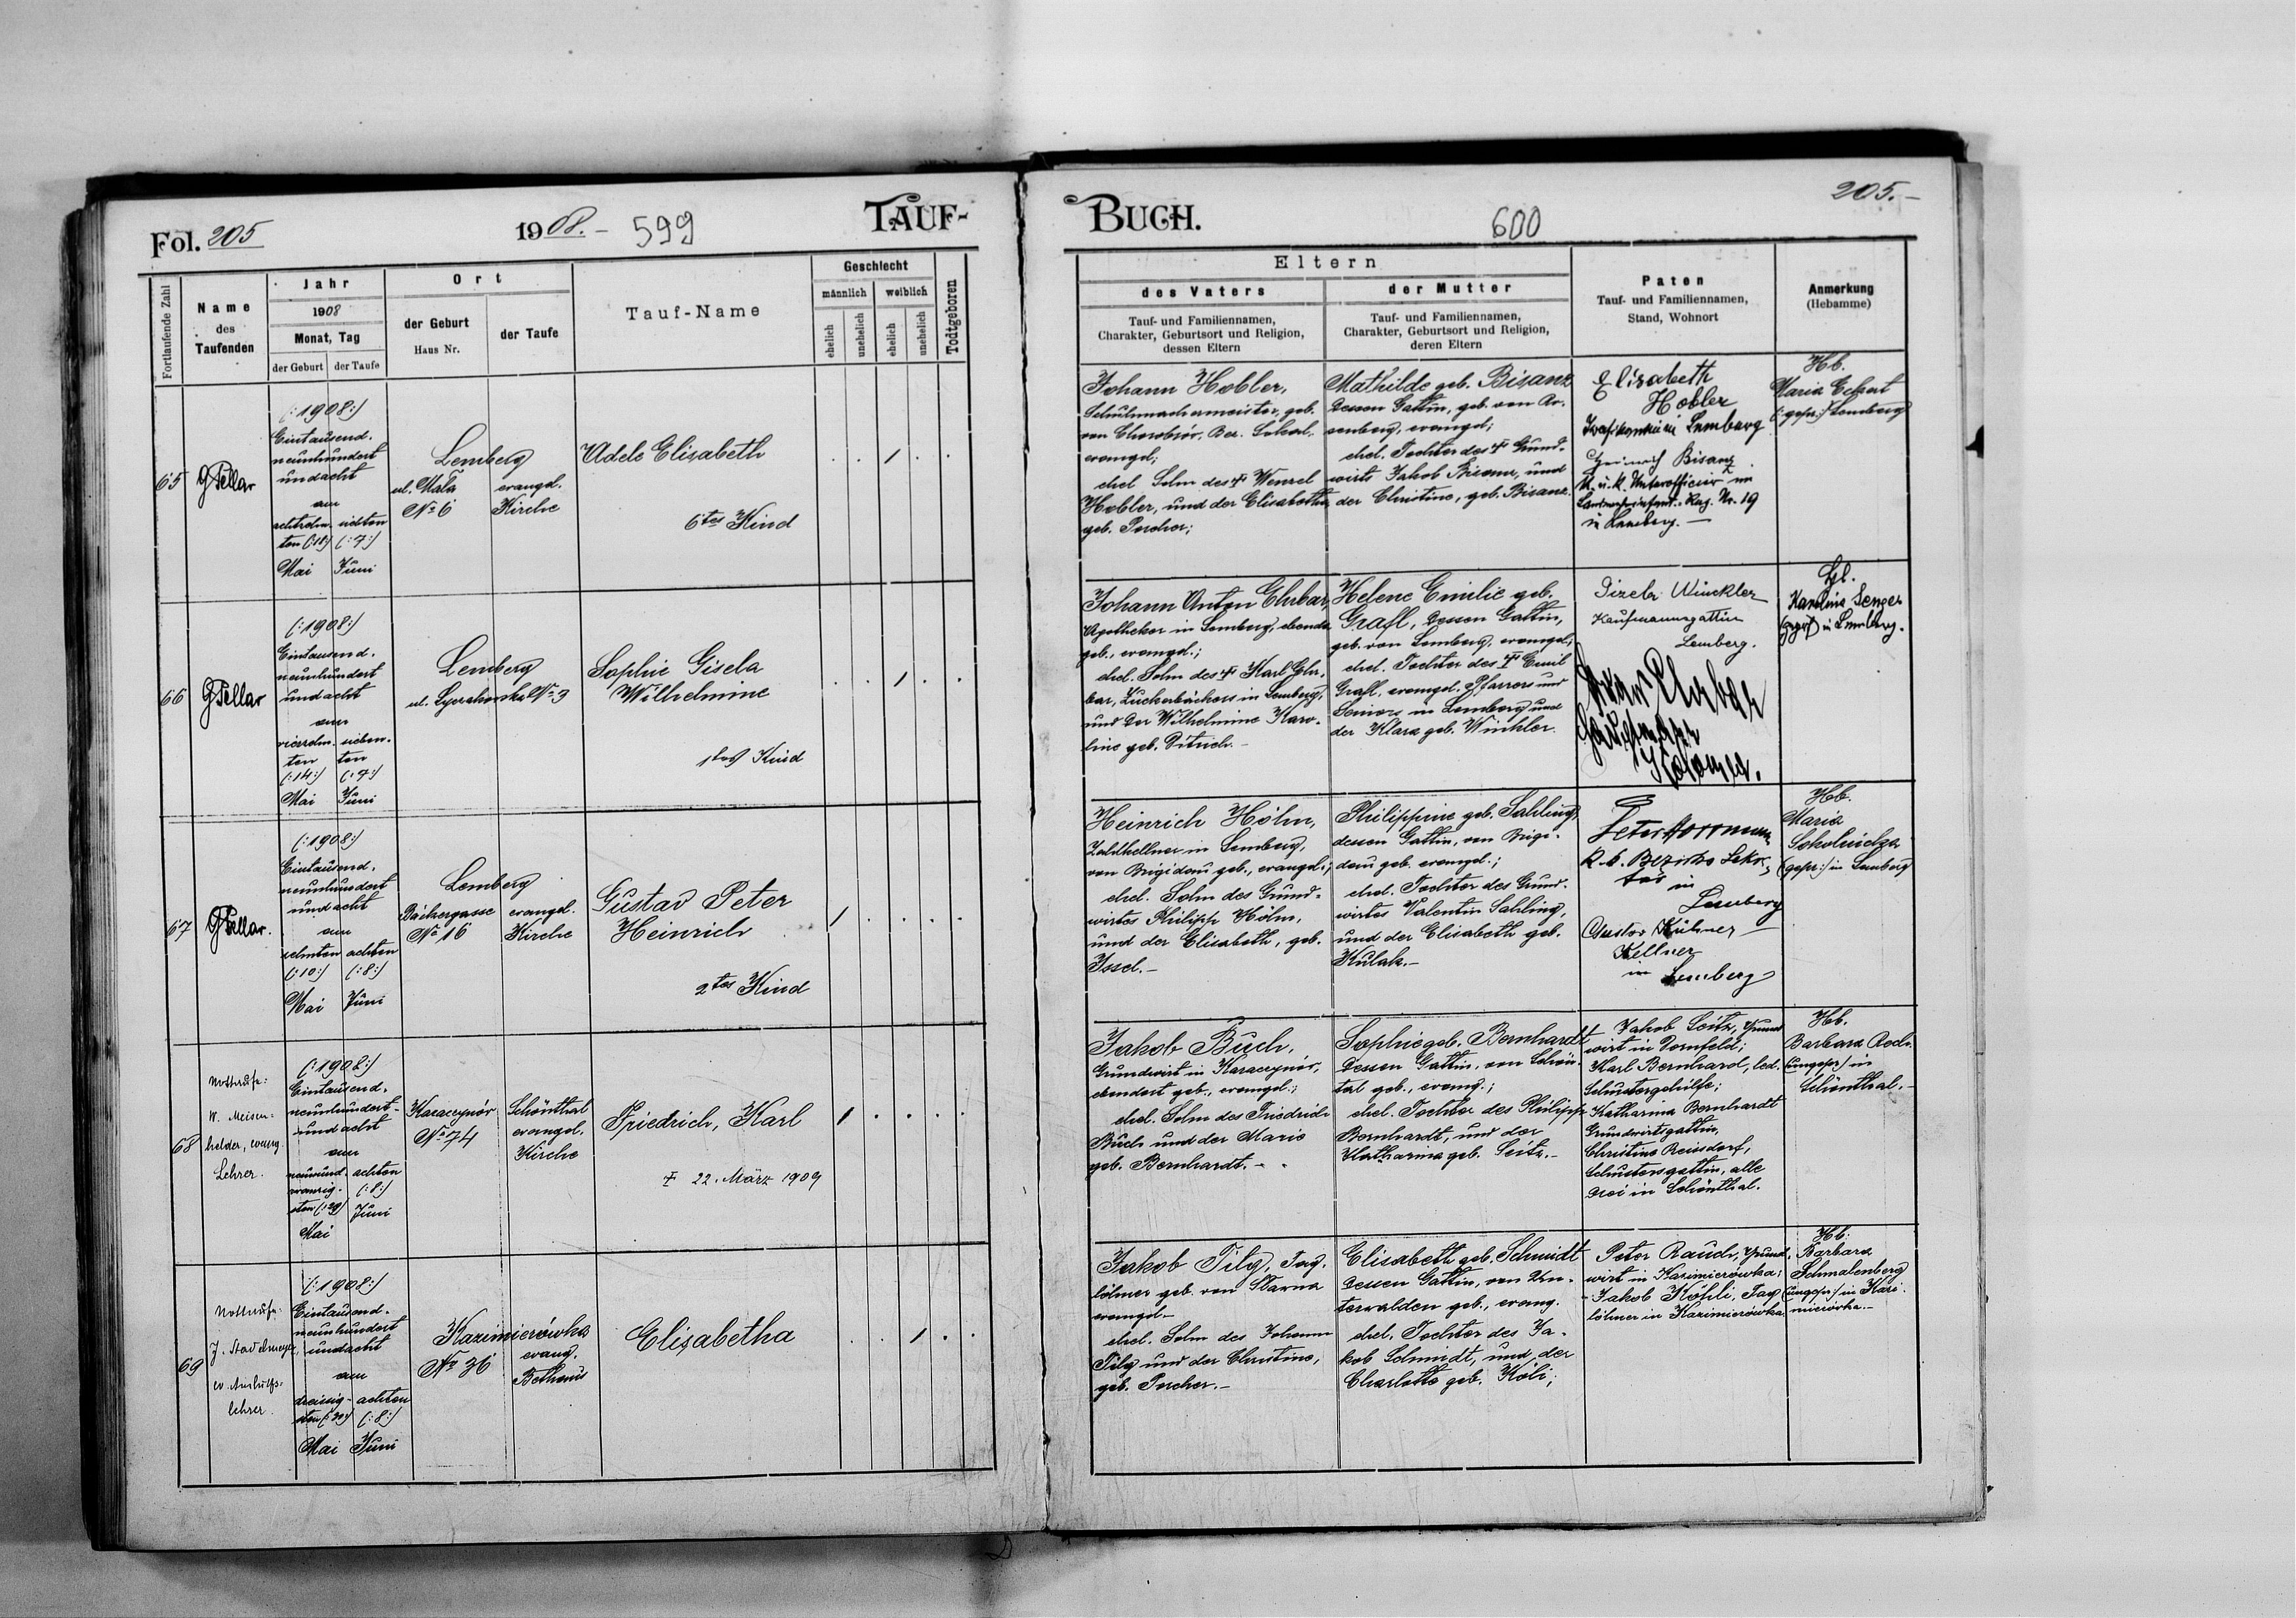 Fol. 205
1908.- 599
TAUF-
Fortlaufende Zahl
Name
des
Taufenden
Jahr
1908
Monat, Tag
der Geburt
der Taufe
Ort
der Geburt
Haus Nr.
der Taufe
Tauf-Name
Geschlecht
männlich
weiblich
ehelich
unehelich
ehelich
unehelich
Todtgeboren
65
(:1908:)
Eintausend-
neunhundert
undacht
am
achtzehn- siebten
ten (:18:) (:7:)
Mai Juni
Lemberg
ul. Mala evangel.
No 6 Kirche
Adele Elisabeth
6tes Kind
66
(:1908:)
Eintausend-
neunhundert
undacht
am
vierzehn- sieben-
ten ten
(:14:) (:7:)
Mai Juni
Lemberg
No 3
Sophie Gisela
Wilhelmine
1tes Kind
67
(:1908:)
Eintausend-
neunhundert
undacht
am
zehnten achten
(:10:) (:8:)
Mai Juni
Lemberg
Bäckergasse evangel.
No 16 Kirche
Gustav Peter
Heinrich
2tes Kind
68
Nottaufe:
W. Meisen-
helder, evang.
Lehrer.
(:1908:)
Eintausend-
neunhundert-
undacht
am
neunund- achten
zwanzig- (:8:)
sten (:29:) Juni
Mai
Karaczynów Schönthal
No 74 evangel.
Kirche
Friedrich, Karl
† 22. März 1909
69
Nottaufe:
J. Stadelmeyer,
ev. Aushilfs-
lehrer.
(:1908:)
Eintausend-
neunhundert
undacht
am
dreissig- achten
sten (:30:) (:8:)
Mai Juni
Kazimierówka
No 36 evang.
Bethaus
Elisabetha
BUCH.
600
205.-
Eltern
des Vaters
Tauf- und Familiennamen,
Charakter, Geburtsort und Religion,
dessen Eltern
der Mutter
Tauf- und Familiennamen,
Charakter, Geburtsort und Religion,
deren Eltern
Paten
Tauf- und Familiennamen,
Stand, Wohnort
Anmerkung
(Hebamme)
Johann Hobler,
Schuhmachermeister, geb.
von Bez. Sokal,
evangel;
ehel Sohn des † Wenzel
Hobler, und der Elisabetha
geb. Porcher;
Mathilde geb. Bisanz
dessen Gattin, geb. von Ro-
senberg, evangel;
ehel. Tochter des † Grund-
wirts Jakob Bisanz, und
der Christine, geb. Bisanz.
Elisabeth
Hobler
in Lemberg
Heinrich Bisanz
K. u. K. Unterofficier im
Reg. Nr. 19
in Lemberg.-
Hb.
Maria Eckert
(:gepr:) Lemberg
Johann Anton Ehrbar,
Apotheker in Lemberg, ebenda
geb., evangel.;
ehel. Sohn des † Karl Ehr-
bar, Zuckerbäckers in Lemberg,
und der Wilhelmine Karo-
line geb. Ditrich.-
Helene Emilie geb.
Grafl, dessen Gattin,
geb. von Lemberg, evangel;
ehel. Tochter des † Emil
Grafl, evangel. Pfarrers und
Seniors in Lemberg und
der Klara geb. Winkler.
Winckler
Kaufmannsgattin
Lemberg.
Ehrbar
Kolomea.
Karoline Senger
in Lemberg.
Heinrich Höhn,
Zahlkellner in Lemberg,
von Brigidau geb., evangel.;
ehel. Sohn des Grund-
wirtes Philipp Höhn,
und der Elisabeth, geb.
Issel.-
Philippine geb. Sahling,
dessen Gattin, von Brigi-
dau geb. evangel.;
ehel. Tochter des Grund-
wirtes Valentin Sahling,
und der Elisabeth geb.
Kulak.-
Peter
k. k. Bezirks Sekre-
tär in
Lemberg
Gustav Kühner
Kellner
in Lemberg
Hb.
Maria
(gepr:) in Lemberg
Jakob Buch,
Grundwirt in Karaczynów,
ebendort geb., evangel.;
ehel. Sohn des Friedrich
Buch und der Marie
geb. Bernhardt.-
Sophie geb. Bernhardt
dessen Gattin, von Schön-
tal geb., evang.;
ehel. Tochter des Philipp
Bernhardt, und der
Katharina geb. Seitz.-
Jakob Seitz, Grund
wirt in Dornfeld;
Karl Bernhard, led.
Schustergehilfe;
Katharina Bernhardt
Grundwirtsgattin,
Christine Reissdorf,
Schustersgattin, alle
drei in Schönthal.
Hb.
Barbara Roch
(ungepr:) in
Schönthal.-
Jakob Tilg, Tag-
löhner geb. von
evangel-
ehel. Sohn des Johann
Tilg und der Christine,
geb. Porcher.-
Elisabeth geb. Schmidt
dessen Gattin, von Un-
terwalden geb., evang.
ehel. Tochter des Ja-
kob Schmidt, und der
Charlotte geb. Köli;
Peter Rauch, Grund-
wirt in Kazimierówka;
Jakob Köhli, Tag-
löhner in Kazimierówka.
Hb.
Barbara
Schmalenberg
(ungepr:) in Kazi-
mierówka.-